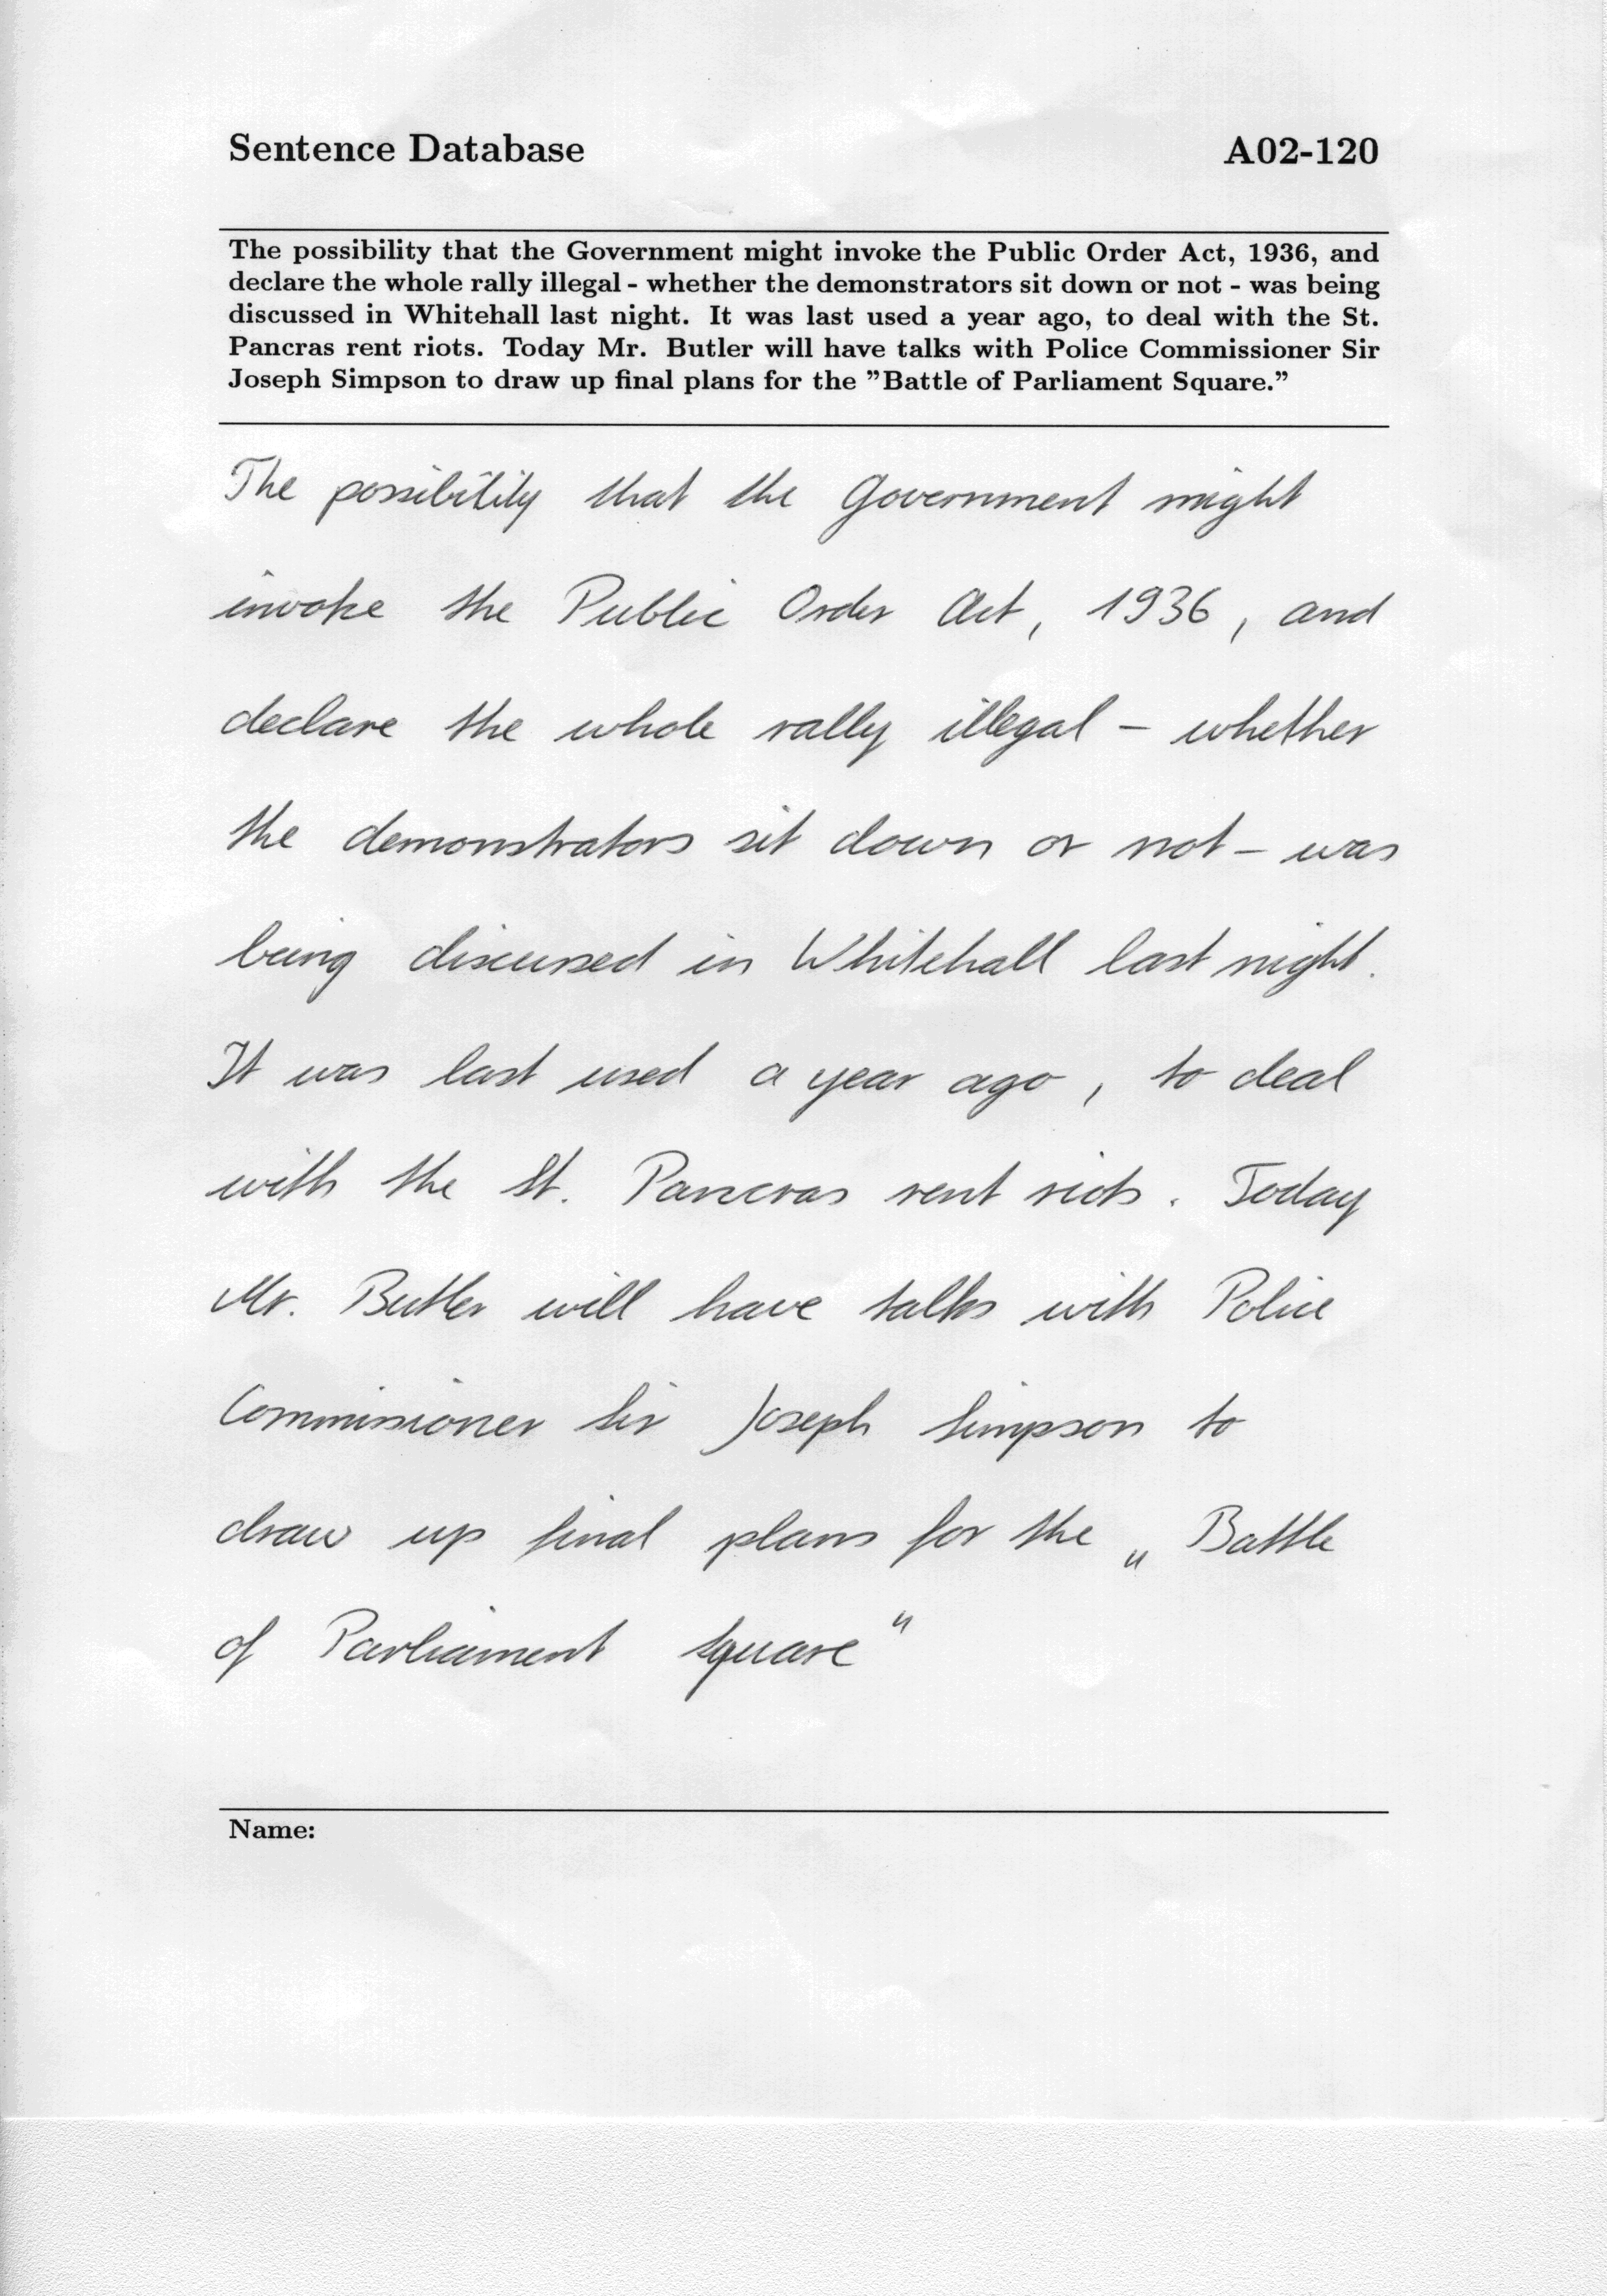 Sentence Database A02-120
The possibility that the Government might invoke the Public Order Act, 1936, and
declare the whole rally illegal - whether the demonstrators sit down or not - was being
discussed in Whitehall last night. It was last used a year ago, to deal with the St.
Pancras rent riots. Today Mr. Butler will have talks with Police Commissioner Sir
Joseph Simpson to draw up final plans for the ”Battle of Parliament Square.”
The possibility that the Government might
invoke the Public Order Act, 1936, and
declare the whole rally illegal – whether
the demonstrators sit down or not – was
being discussed in Whitehall last night.
It was last used a year ago, to deal
with the St. Pancras rent riots. Today
Mr. Butler will have talks with Police
Commissioner Sir Joseph Simpson to
draw up final plans for the „Battle
of Parliament Square“
Name: